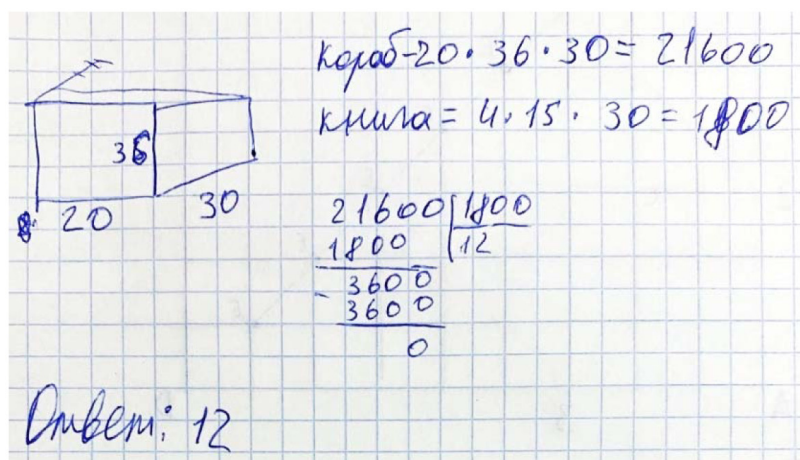 Кораб-20·36·30=21600
книга=4·15·30=1800
36
20
30
21600 1800
1800 12
3600
-3600
0
Ответ: 12